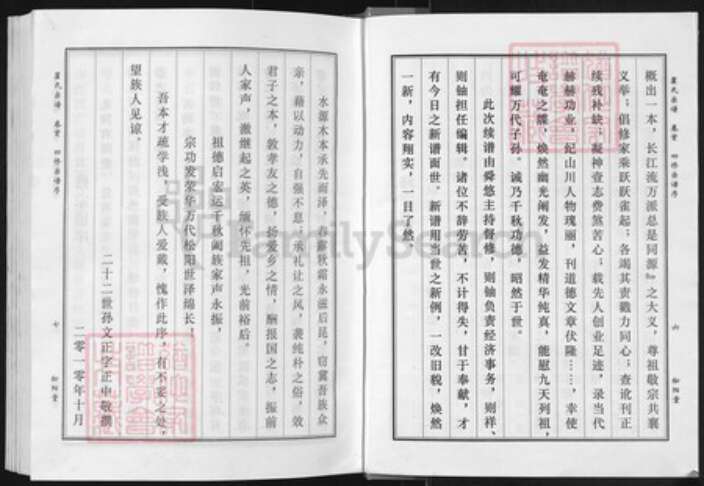 概出一本，长江流万派总是同源』之大义，尊祖敬宗共襄
义举；倡修家乘跃跃雀起；各竭其责戮力同心；查讹刊正
续残补缺；凝神查志费煞苦心；载先人创业足迹，录当代
赫赫功业，纪山川人物瑰丽，刊道德文章伏隆……，幸使
奄奄之牒，焕然幽光阐发，益发精华纯真，能慰九天列祖，
可耀万代子孙。诚乃千秋功德，昭然于世。
此次续谱由舜悠主持督修，则铀负责经济事务，则祥、
则铀担任编辑。诸位不辞劳苦，不计得失，甘于奉献，才
有今日之新谱面世。新谱用当世之新例，一改旧貌，焕然
一新，内容翔实，一目了然。
水源木本承先而泽，春露秋霜永滋后昆，窃冀吾族众
亲，藉以动力，自强不息；承礼让之风，袭纯朴之俗，效
君子之本，敦孝友之德，扬爱乡之情，酬报国之志，振前
人家声，激继起之英，缅怀先祖，光前裕后。
祖德启宏运千秋阖族家声永振，
宗功发荣华万代松阳世泽绵长，
吾本才疏学浅，受族人爱戴，愧作此序，有不妥之处，
望族人见谅。
二十二世孙文正字正中敬撰
二零一零年十月
七
FamilySearch